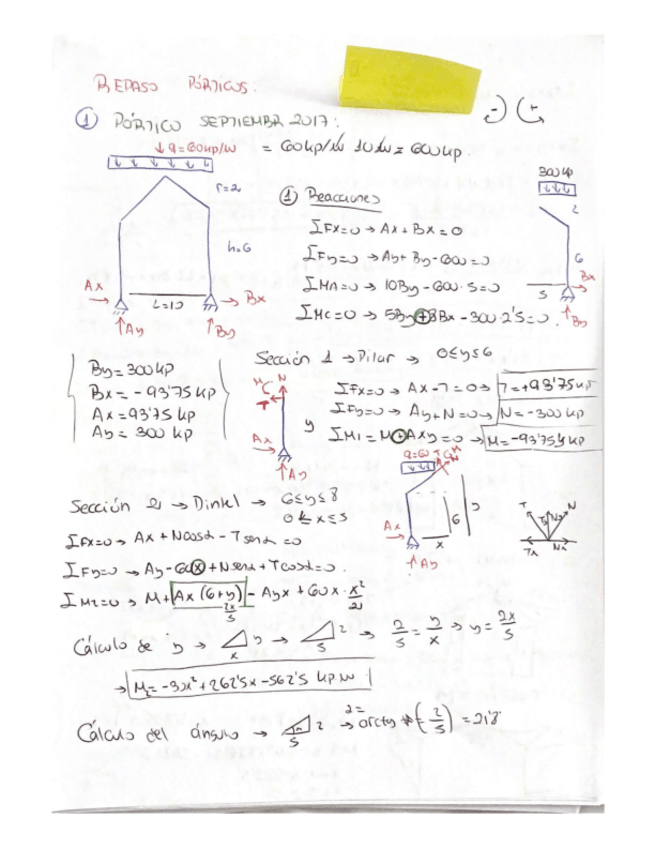 REPASO PÓRTICOS:
① PÓRTICO SEPTIEMBR 2017:
↓q=60kp/m = 60kp/m 10m = 600kp.
300kp
r=2
① Reacciones
2
ΣFx=0 → Ax+Bx=0
h=6
ΣFy=0 → Ay+By-600=0
6
Ax
ΣMA=0 → 10By-600·5=0
5
Bx
L=10
Bx
ΣMC=0 → 5By+8Bx-300·2'5=0.
By
Ay
By
By=300kp
Bx=-93'75kp
Ax=93'75kp
Ay=300kp
Sección 1 → Pilar → 0≤y≤6
M N
T
y
Ax
Ay
ΣFx=0 → Ax-T=0 → T=+93'75kp
ΣFy=0 → Ay+N=0 → N=-300kp
ΣM1=M+Axy=0 → M=-93'75y kp
q=60 T M N
Sección 2 → Dintel → 6≤y≤8
0≤x≤5
Ax
x
6
y
Ay
T Ty Ny N
Tx Nx
ΣFx=0 → Ax+Ncosα-Tsenα=0
ΣFy=0 → Ay-60x+Nsenα+Tcosα=0.
ΣM2=0 → M+Ax(6+y)-Ayx+60x·x²/2
2x/5
Cálculo de y → y x → 2 5 → 2/5 = y/x → y = 2x/5
→ M2=-30x²+262'5x-562'5 kp m
Cálculo del ángulo → 2 5 → α = arctg (2/5) = 21'8